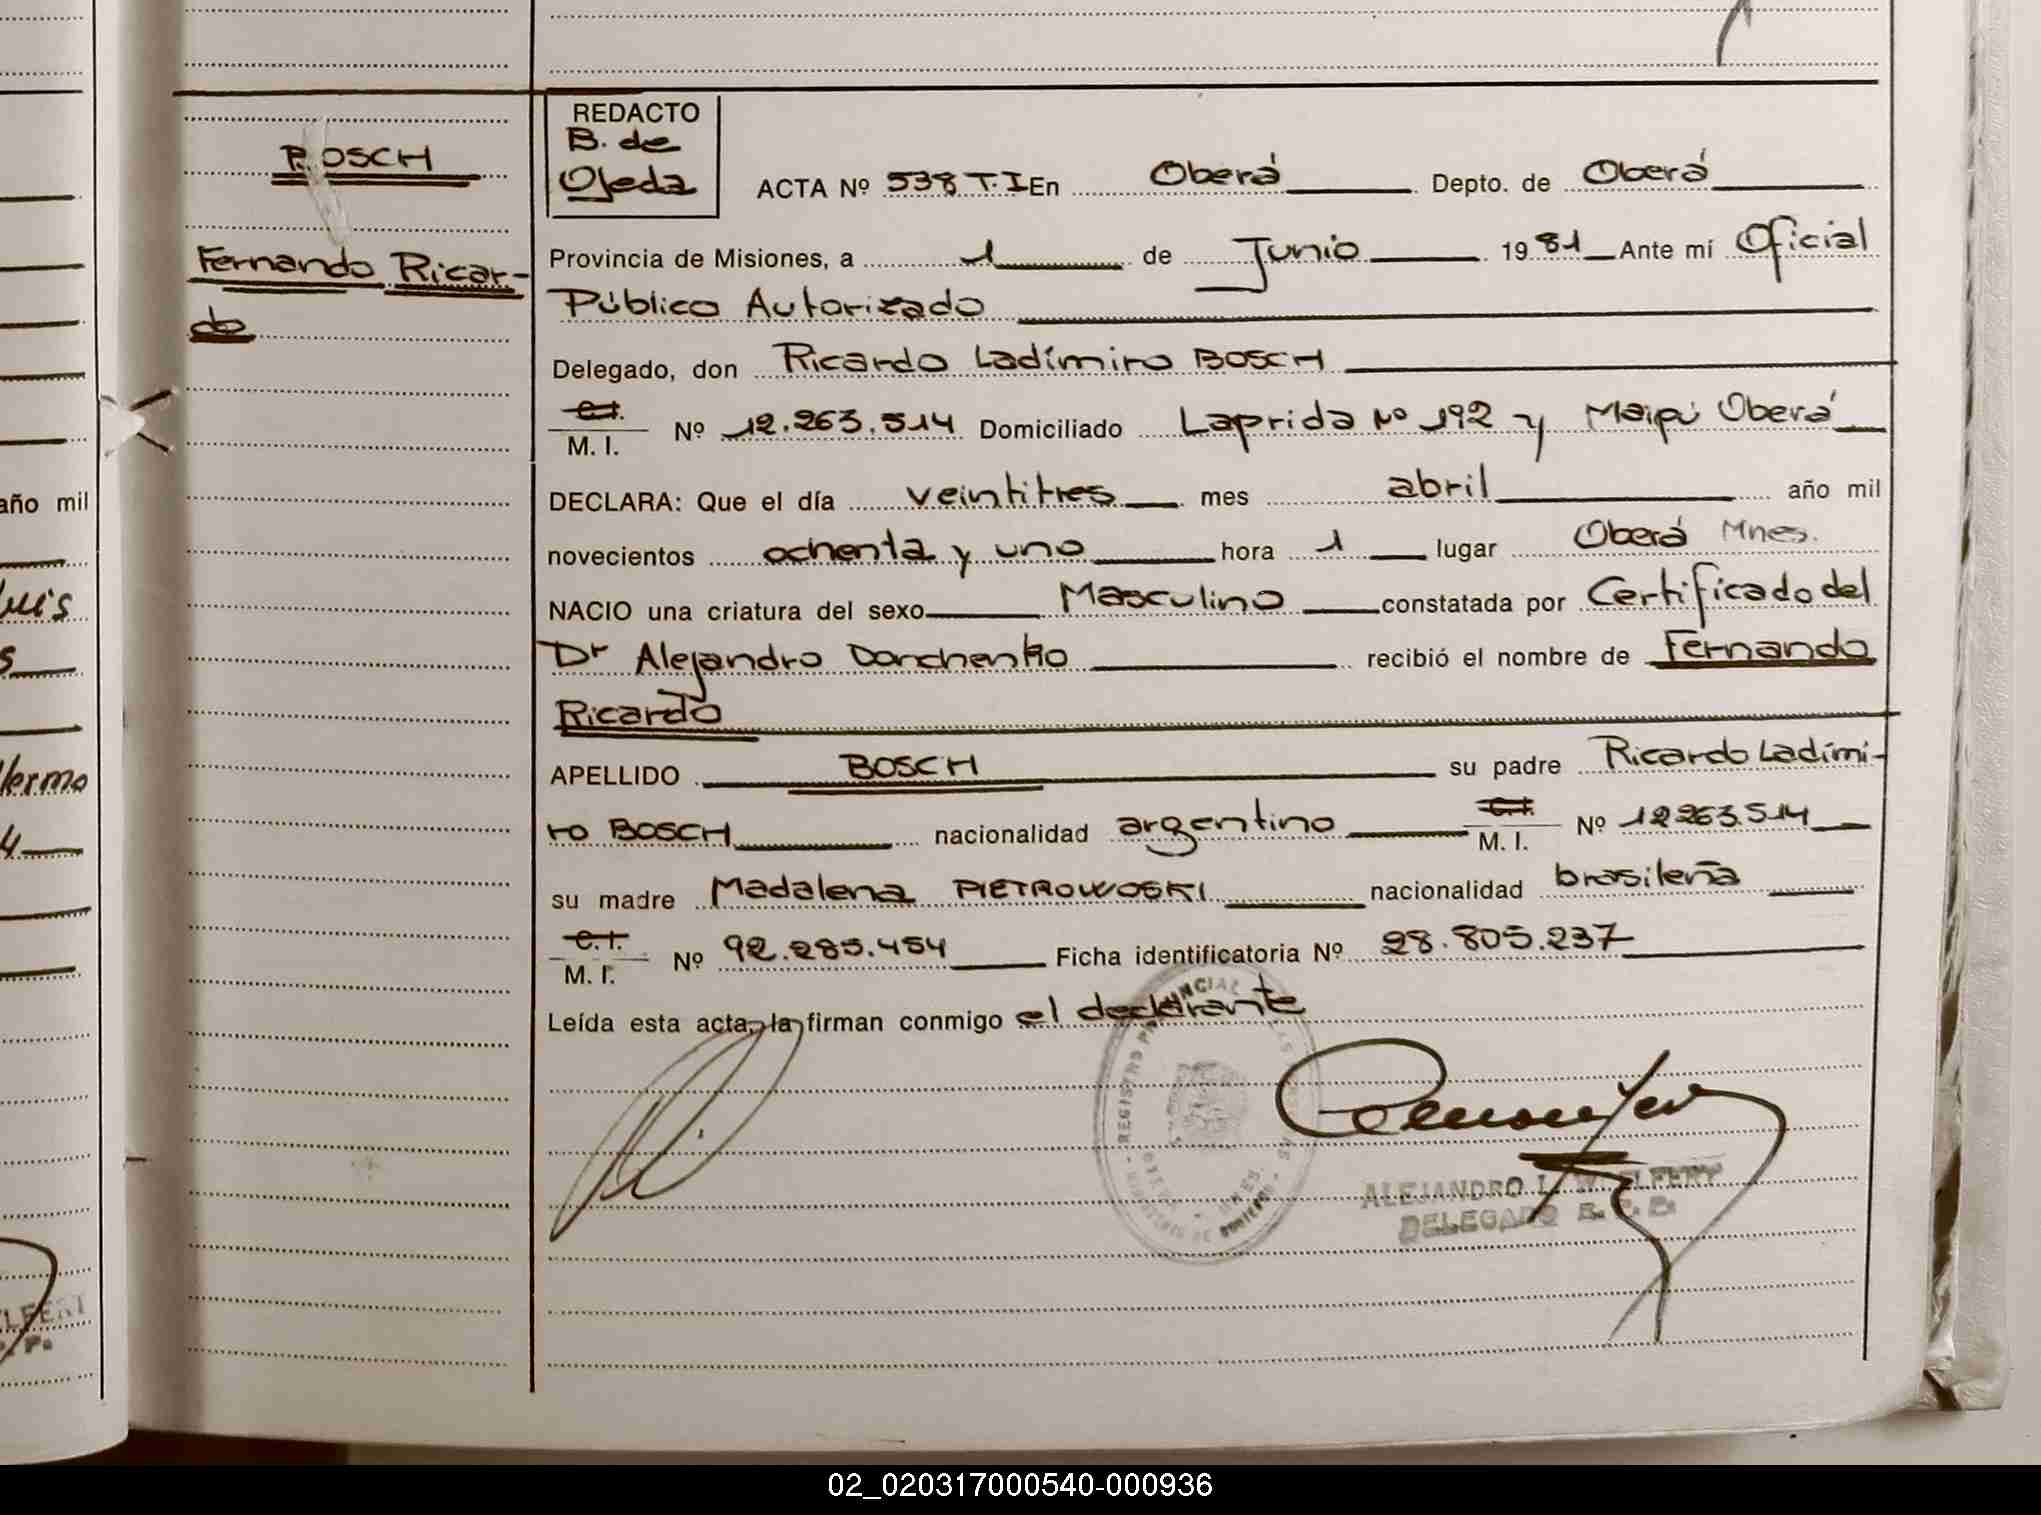 BOSCH
Fernando Ricar-
do
REDACTO
B. de
Ojeda
ACTA Nº 538 T.I En Oberá Depto. de Oberá
Provincia de Misiones, a 1 de Junio 1981 Ante mí Oficial
Público Autorizado
Delegado, don Ricardo Ladímiro BOSCH
C.I.
M. I. Nº 12.263.514 Domiciliado Laprida Nº 192 y Maipú Oberá
DECLARA: Que el día veintitres mes abril año mil
novecientos ochenta y uno hora 1 lugar Oberá Mnes.
NACIO una criatura del sexo Masculino constatada por Certificado del
Dr Alejandro Donchenko recibió el nombre de Fernando
Ricardo
APELLIDO BOSCH su padre Ricardo Ladími-
ro BOSCH nacionalidad argentino C.I. M. I. Nº 12263.514
su madre Madalena PIETROWOSKI nacionalidad brasileña
C.I.
M. I. Nº 92.285.454 Ficha identificatoria Nº 28.805.237
Leída esta acta, la firman conmigo el declarante
ALEJANDRO L. WELFERT
DELEGADO R. P.
año mil
uis
s
lermo
4
LFERT
02_020317000540-000936